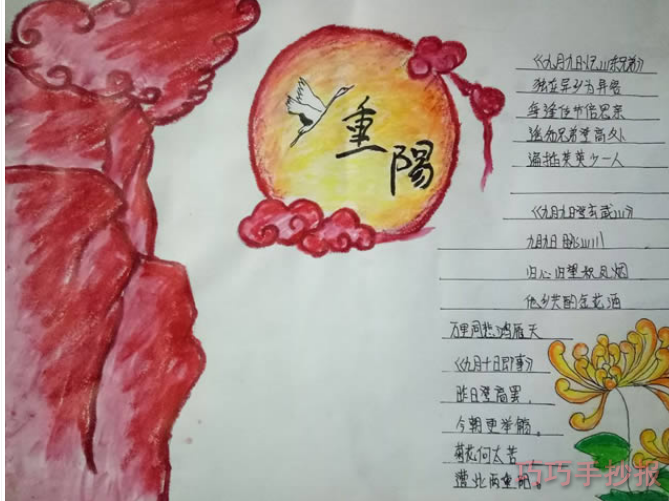 重陽
《九月九日忆山东兄弟》
独在异乡为异客
每逢佳节倍思亲
遥知兄弟登高处
遍插茱萸少一人
《九月九日登玄武山》
九月九日眺山川
归心归望积风烟
他乡共酌金花酒
万里同悲鸿雁天
《九月十日即事》
昨日登高罢,
今朝更举觞。
菊花何太苦
遭此两重阳。
巧巧手抄报